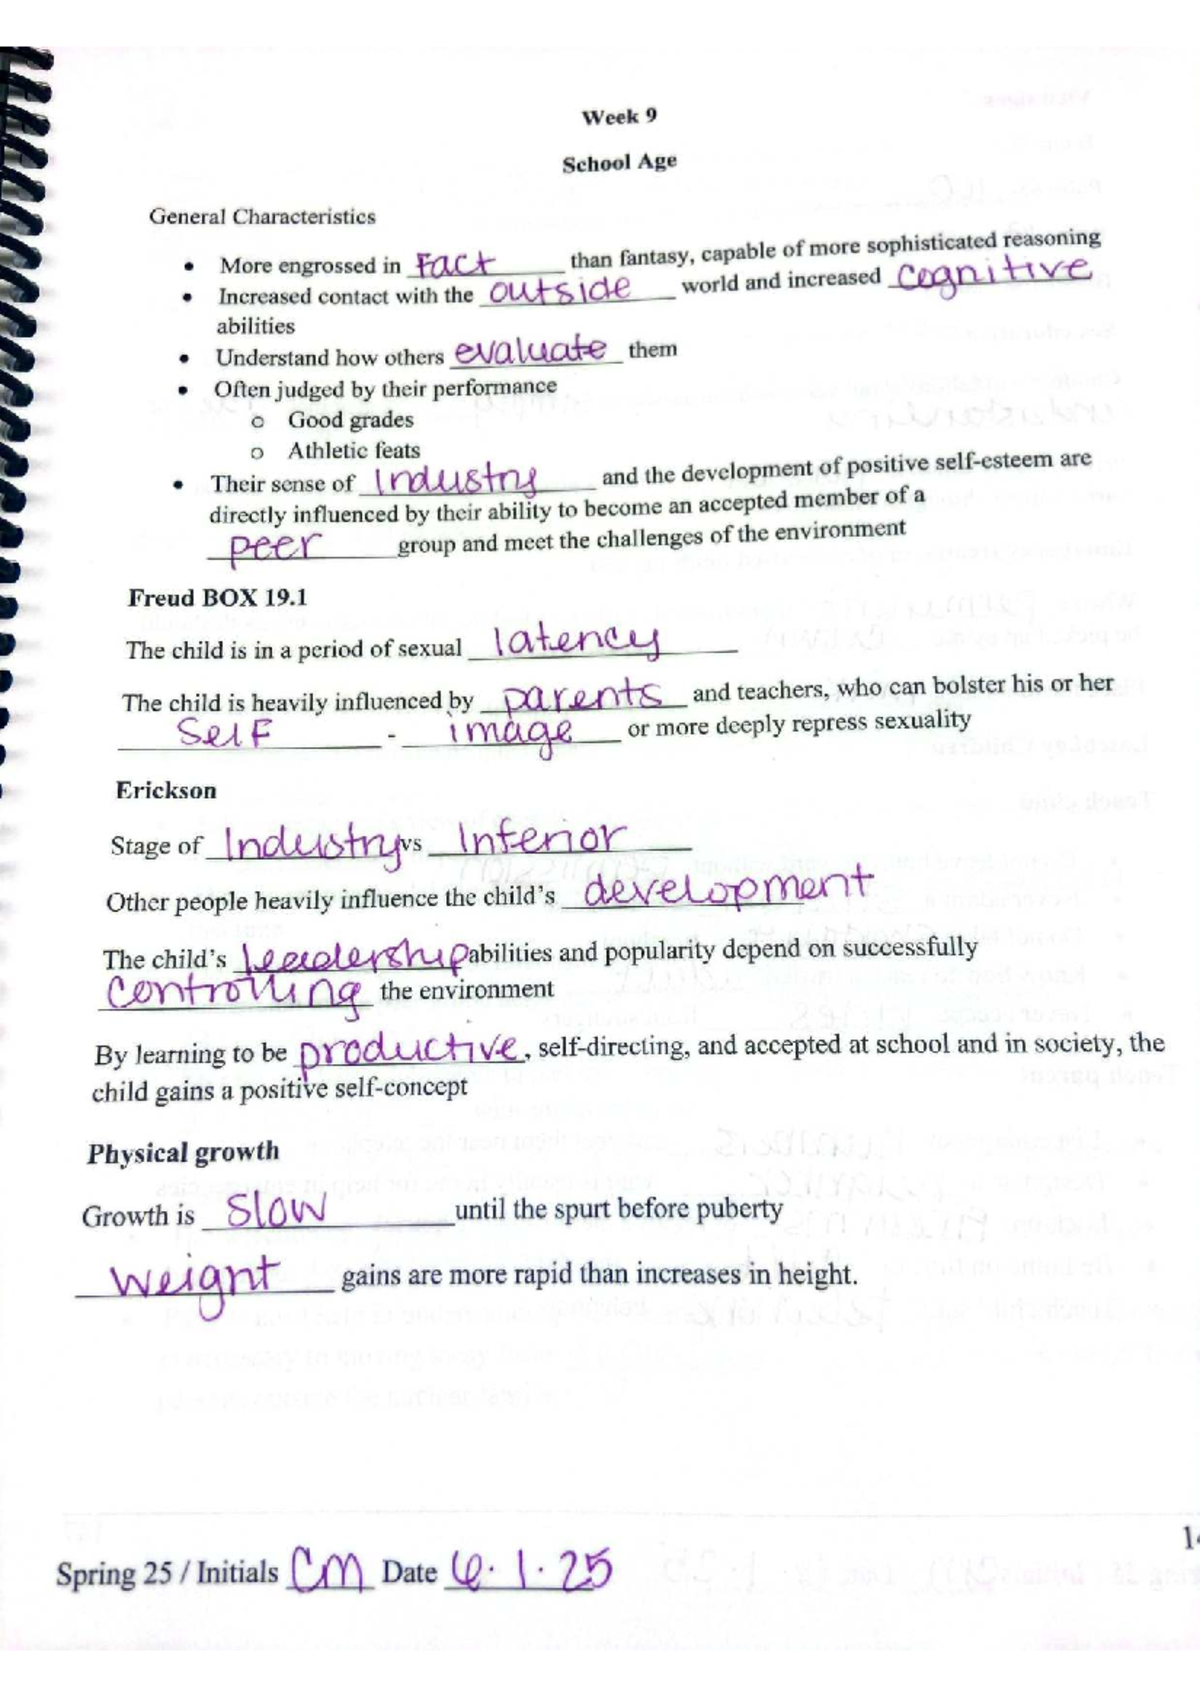 Week 9
School Age
General Characteristics
• More engrossed in Fact than fantasy, capable of more sophisticated reasoning
• Increased contact with the outside world and increased cognitive
abilities
• Understand how others evaluate them
• Often judged by their performance
o Good grades
o Athletic feats
• Their sense of Industry and the development of positive self-esteem are
directly influenced by their ability to become an accepted member of a
peer group and meet the challenges of the environment
Freud BOX 19.1
The child is in a period of sexual latency
The child is heavily influenced by parents and teachers, who can bolster his or her
Self - image or more deeply repress sexuality
Erickson
Stage of Industry vs Inferior
Other people heavily influence the child's development
The child's leadership abilities and popularity depend on successfully
controlling the environment
By learning to be productive, self-directing, and accepted at school and in society, the
child gains a positive self-concept
Physical growth
Growth is slow until the spurt before puberty
weight gains are more rapid than increases in height.
Spring 25 / Initials CM Date 6.1.25